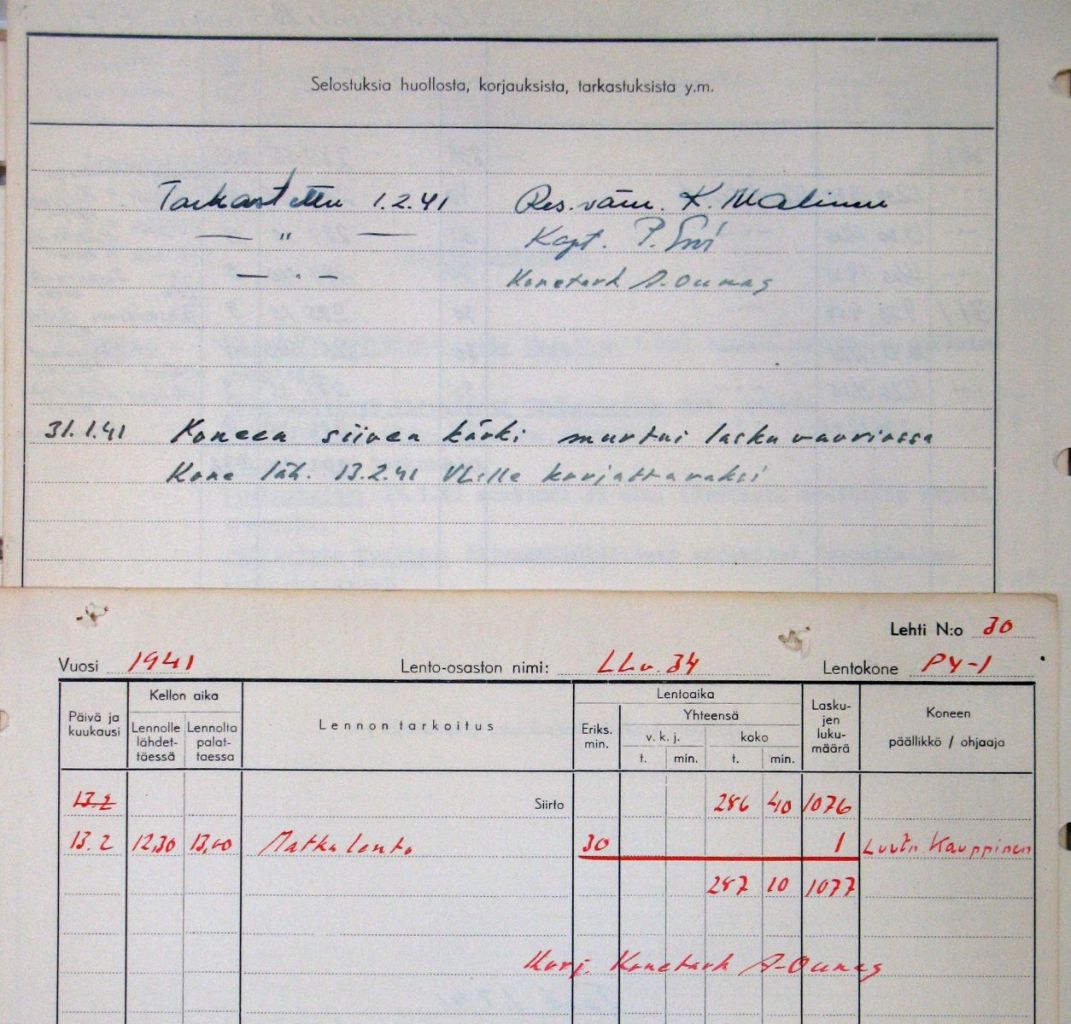 Selostuksia huollosta, korjauksista, tarkastuksista y.m.
Tarkastettu 1.2.41 Res.vänr. K. Malinen
— " — Kapt. P.
— " — Konetark A-Ounas
31.1.41 Koneen siiven kärki murtui laskuvauriossa
Kone läh. 13.2.41 VLille korjattavaksi
Lehti N:o 30
Vuosi 1941 Lento-osaston nimi: LLv. 34 Lentokone PY-1
Päivä ja kuukausi Kellon aika Lennolle lähdettäessä Lennolta palattaessa Lennon tarkoitus Lentoaika Eriks. min. Yhteensä v. k. j. t. min. koko t. min. Laskujen lukumäärä Koneen päällikkö / ohjaaja
13.2 Siirto 286 40 1076
13.2 12,30 13,00 Matkalento 30 1 Luutn. Kauppinen
287 10 1077
Korj. Konetark A-Ounas